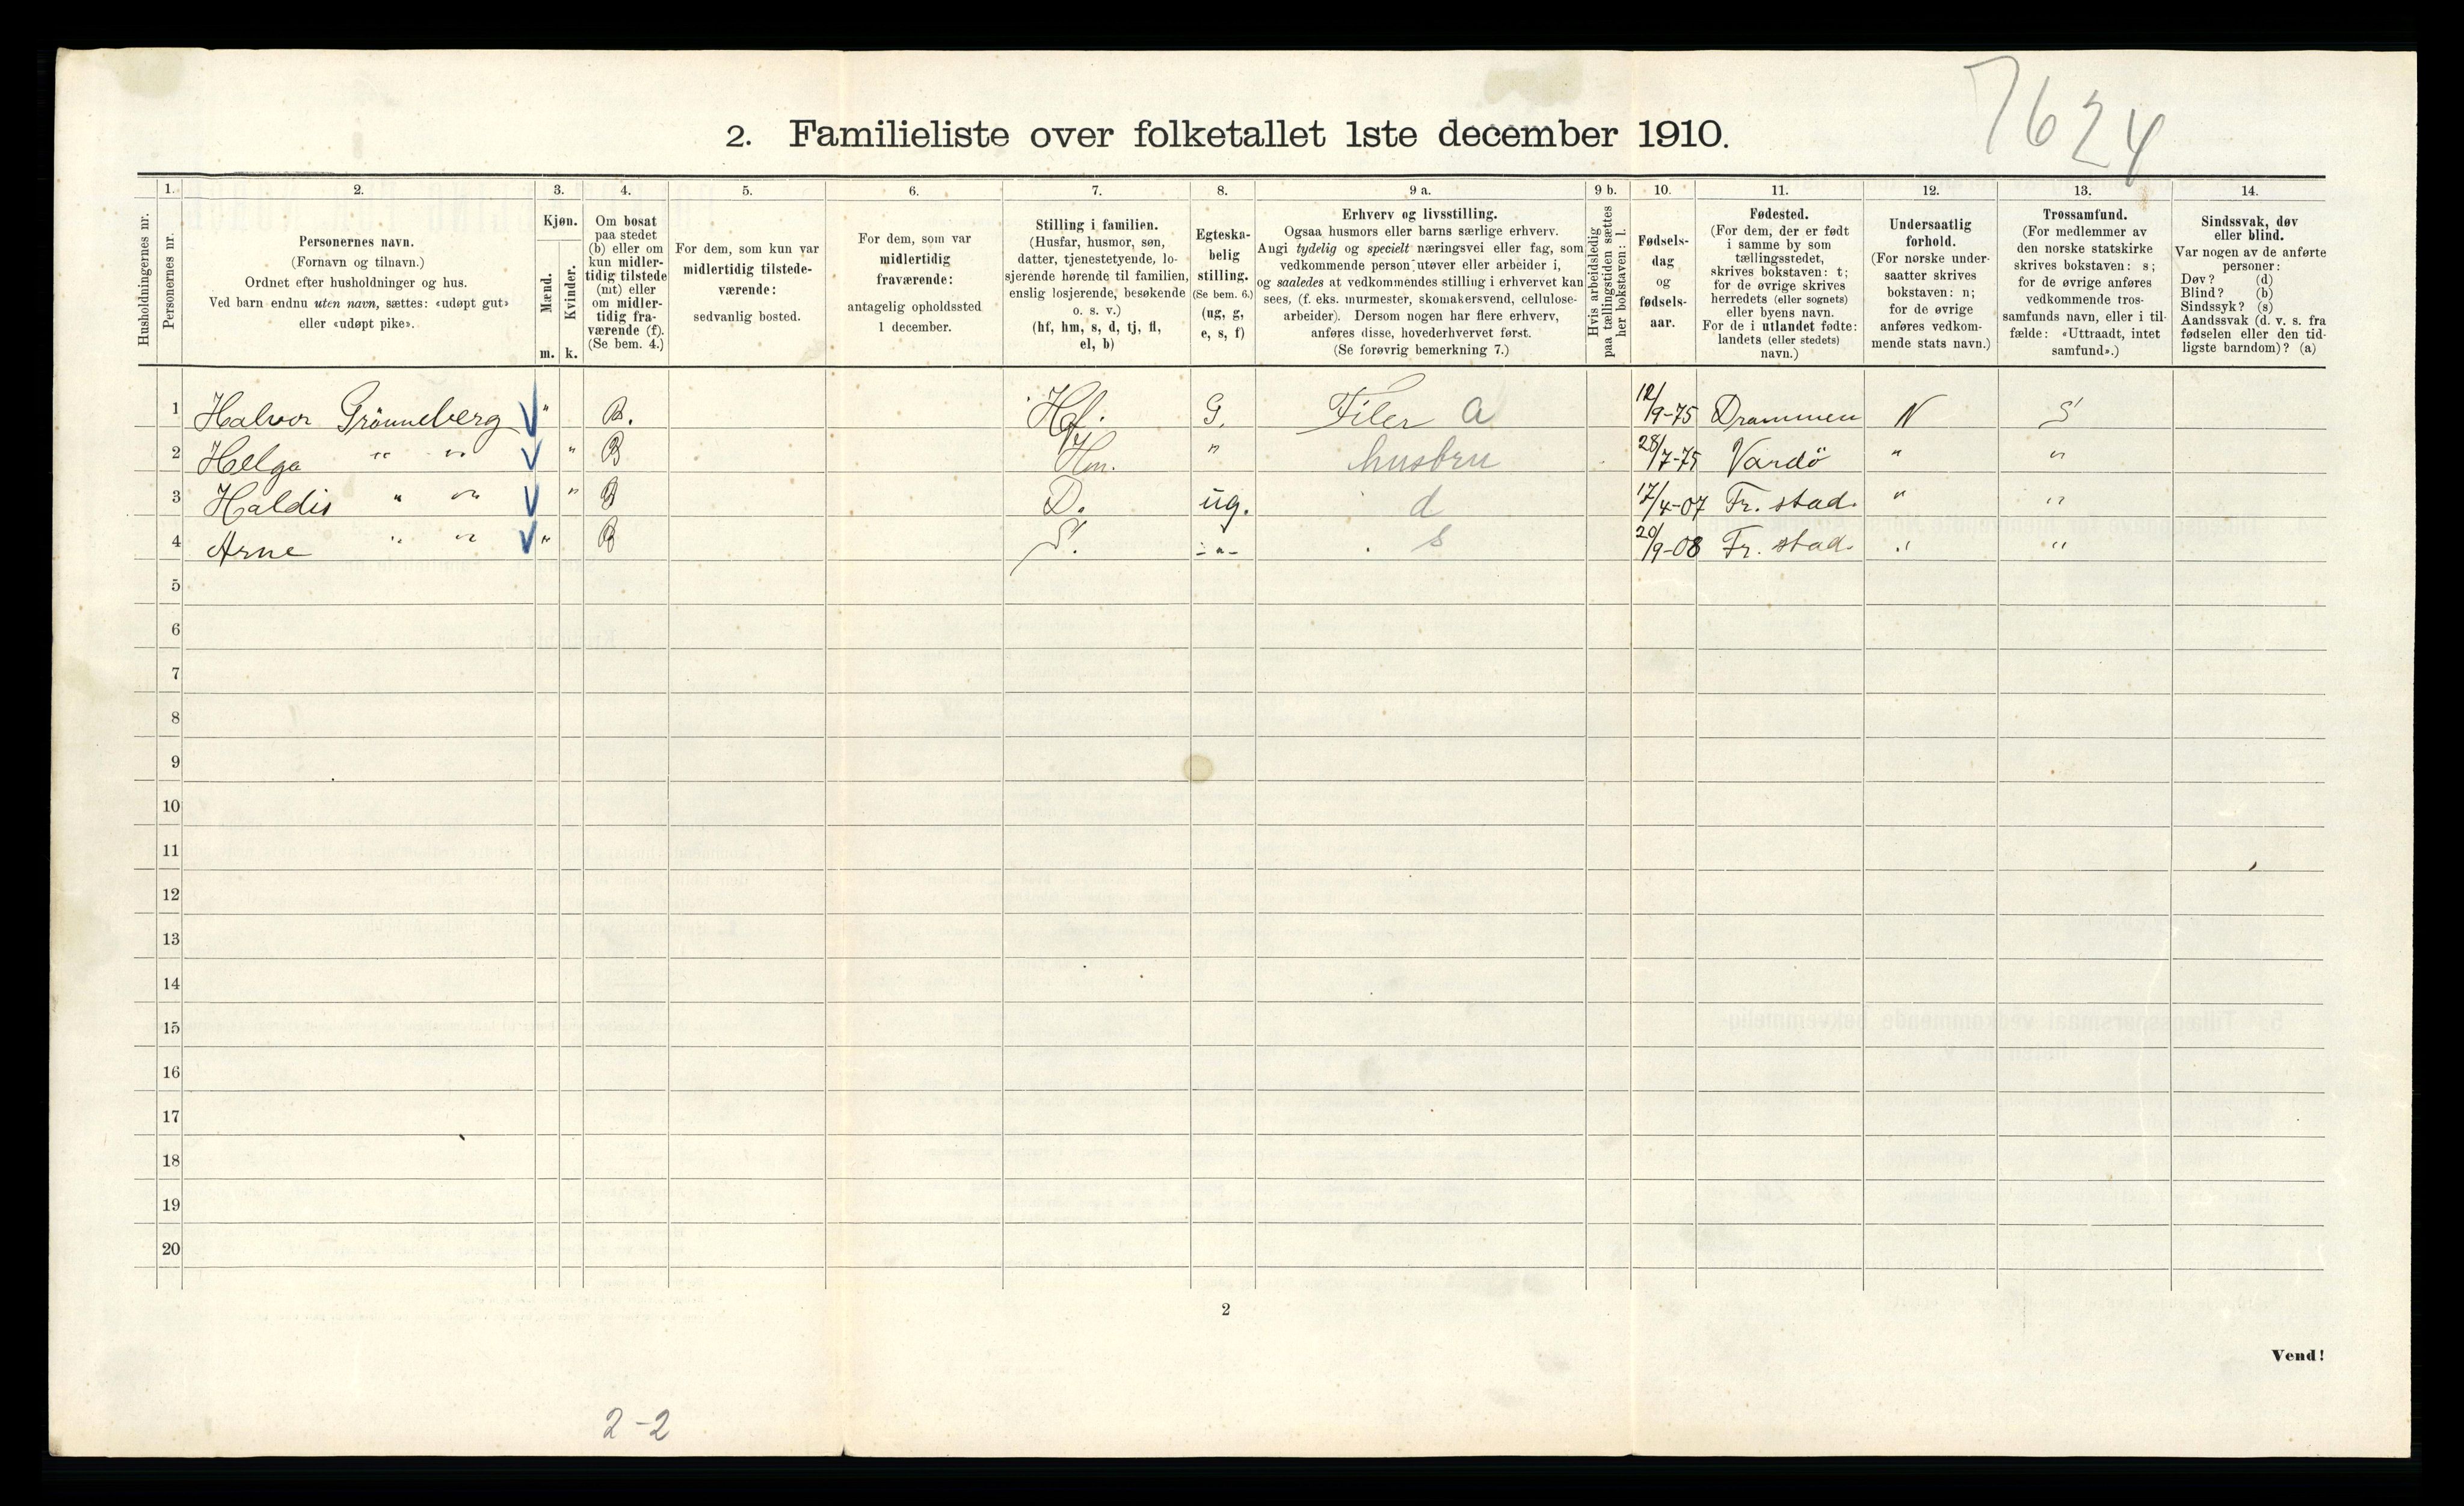 7624
2. Familieliste over folketallet 1ste december 1910.
1. 2. 3. 4. 5. 6. 7. 8. 9 a. 9 b. 10. 11. 12. 13. 14.
Husholdningernes nr.
Personernes nr.
Personernes navn.
(Fornavn og tilnavn.)
Ordnet efter husholdninger og hus.
Ved barn endnu uten navn, sættes: «udøpt gut»
eller «udøpt pike».
Kjøn.
Mænd.
Kvinder.
m. k.
Om bosat
paa stedet
(b) eller om
kun midler-
tidig tilstede
(mt) eller
om midler-
tidig fra-
værende (f).
(Se bem. 4.)
For dem, som kun var
midlertidig tilstede-
værende:
sedvanlig bosted.
For dem, som var
midlertidig
fraværende:
antagelig opholdssted
1 december.
Stilling i familien.
(Husfar, husmor, søn,
datter, tjenestetyende, lo-
sjerende hørende til familien,
enslig losjerende, besøkende
o. s. v.)
(hf, hm, s, d, tj, fl,
el, b)
Egteska-
belig
stilling.
(Se bem. 6.)
(ug, g,
e, s, f)
Erhverv og livsstilling.
Ogsaa husmors eller barns særlige erhverv.
Angi tydelig og specielt næringsvei eller fag, som
vedkommende person utøver eller arbeider i,
og saaledes at vedkommendes stilling i erhvervet kan
sees, (f. eks. murmester, skomakersvend, cellulose-
arbeider). Dersom nogen har flere erhverv,
anføres disse, hovederhvervet først.
(Se forøvrig bemerkning 7.)
Hvis arbeidsledig
paa tællingstiden sættes
her bokstaven: l.
Fødsels-
dag
og
fødsels-
aar.
Fødested.
(For dem, der er født
i samme by som
tællingsstedet,
skrives bokstaven: t;
for de øvrige skrives
herredets (eller sognets)
eller byens navn.
For de i utlandet fødte:
landets (eller stedets)
navn.)
Undersaatlig
forhold.
(For norske under-
saatter skrives
bokstaven: n;
for de øvrige
anføres vedkom-
mende stats navn.)
Trossamfund.
(For medlemmer av
den norske statskirke
skrives bokstaven: s;
for de øvrige anføres
vedkommende tros-
samfunds navn, eller i til-
fælde: «Uttraadt, intet
samfund».)
Sindssvak, døv
eller blind.
Var nogen av de anførte
personer:
Døv? (d)
Blind? (b)
Sindssyk? (s)
Aandssvak (d. v. s. fra
fødselen eller den tid-
ligste barndom)? (a)
1 Halvor Grönneberg " B. Hf. G. Filer a 12/9-75 Drammen N S
2 Helga " " " B Hm. " husbru 28/7-75 Vardö " "
3 Haldis " " " B D. ug. d 17/4-07 Fr. stad. " "
4 Arne " " " B S. -"- s 20/9-08 Fr. stad. " "
5
6
7
8
9
10
11
12
13
14
15
16
17
18
19
20
2
Vend!
2-2